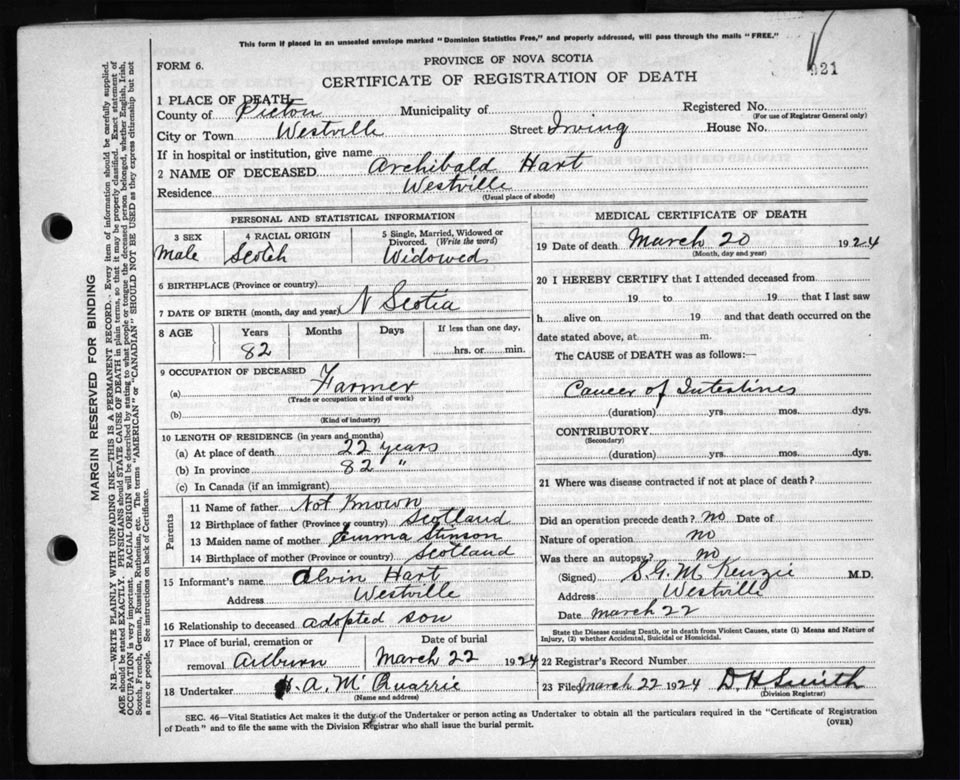 This form if placed in an unsealed envelope marked "Dominion Statistics Free," and properly addressed, will pass through the mails "FREE."
921
FORM 6.
PROVINCE OF NOVA SCOTIA
CERTIFICATE OF REGISTRATION OF DEATH
1 PLACE OF DEATH
County of Pictou Municipality of Registered No.
(For use of Registrar General only)
City or Town Westville Street Irving House No.
If in hospital or institution, give name
2 NAME OF DECEASED Archibald Hart
Residence Westville
(Usual place of abode)
PERSONAL AND STATISTICAL INFORMATION
3 SEX 4 RACIAL ORIGIN 5 Single, Married, Widowed or Divorced. (Write the word)
Male Scotch Widowed
6 BIRTHPLACE (Province or country)
N Scotia
7 DATE OF BIRTH (month, day and year)
8 AGE Years Months Days If less than one day,
82 hrs. or min.
9 OCCUPATION OF DECEASED
(a) Farmer
(Trade or occupation or kind of work)
(b)
(Kind of industry)
10 LENGTH OF RESIDENCE (in years and months)
(a) At place of death 22 years
(b) In province 82 "
(c) In Canada (if an immigrant)
Parents
11 Name of father Not Known
12 Birthplace of father (Province or country) Scotland
13 Maiden name of mother Emma Stinson
14 Birthplace of mother (Province or country) Scotland
15 Informant's name Alvin Hart
Address Westville
16 Relationship to deceased adopted son
17 Place of burial, cremation or Date of burial
removal Auburn March 22 1924
18 Undertaker H. A. McQuarrie
(Name and address)
MEDICAL CERTIFICATE OF DEATH
19 Date of death March 20 1924
(Month, day and year)
20 I HEREBY CERTIFY that I attended deceased from
19 to 19 that I last saw
h alive on 19 and that death occurred on the
date stated above, at m.
The CAUSE of DEATH was as follows:—
Cancer of Intestines
(duration) yrs. mos. dys.
CONTRIBUTORY
(Secondary)
(duration) yrs. mos. dys.
21 Where was disease contracted if not at place of death?
Did an operation precede death? no Date of
Nature of operation no
Was there an autopsy? no
(Signed) S.G. McKenzie M.D.
Address Westville
Date March 22
State the Disease causing Death, or in death from Violent Causes, state (1) Means and Nature of
Injury, (2) whether Accidental, Suicidal or Homicidal.
22 Registrar's Record Number
23 Filed March 22 1924 D. H. Smith
(Division Registrar)
SEC. 46—Vital Statistics Act makes it the duty of the Undertaker or person acting as Undertaker to obtain all the particulars required in the "Certificate of Registration
of Death" and to file the same with the Division Registrar who shall issue the burial permit.
(OVER)
MARGIN RESERVED FOR BINDING
N.B.—WRITE PLAINLY WITH UNFADING INK—THIS IS A PERMANENT RECORD. Every item of information should be carefully supplied.
AGE should be stated EXACTLY. PHYSICIANS should STATE CAUSE OF DEATH in plain terms, so that it may be properly classified. Exact statement of
OCCUPATION is very important. RACIAL ORIGIN will be described by stating to what people or tongue the deceased person belonged, whether English, Irish,
Scotch, French, German, Russian, Ruthenian, etc. The terms "AMERICAN" or "CANADIAN" SHOULD NOT BE USED as they express citizenship but not
a race or people. See instructions on back of Certificate.